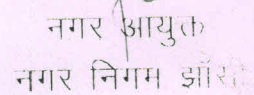 नगर आयुक्त
नगर निगम झाँसी